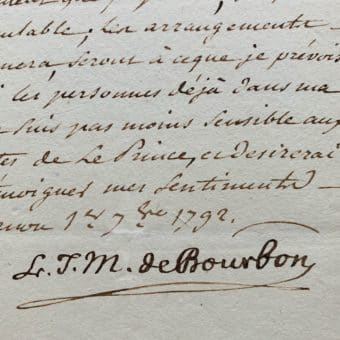 que
ulable; les arrangements
nera seront à ceque je prévois
les personnes déjà dans ma
suis pas moins sensible aux
tes de Le Prince, et desirerai
émoigner mes sentiments
rnon 1er 7bre 1792.
L. J. M. de Bourbon